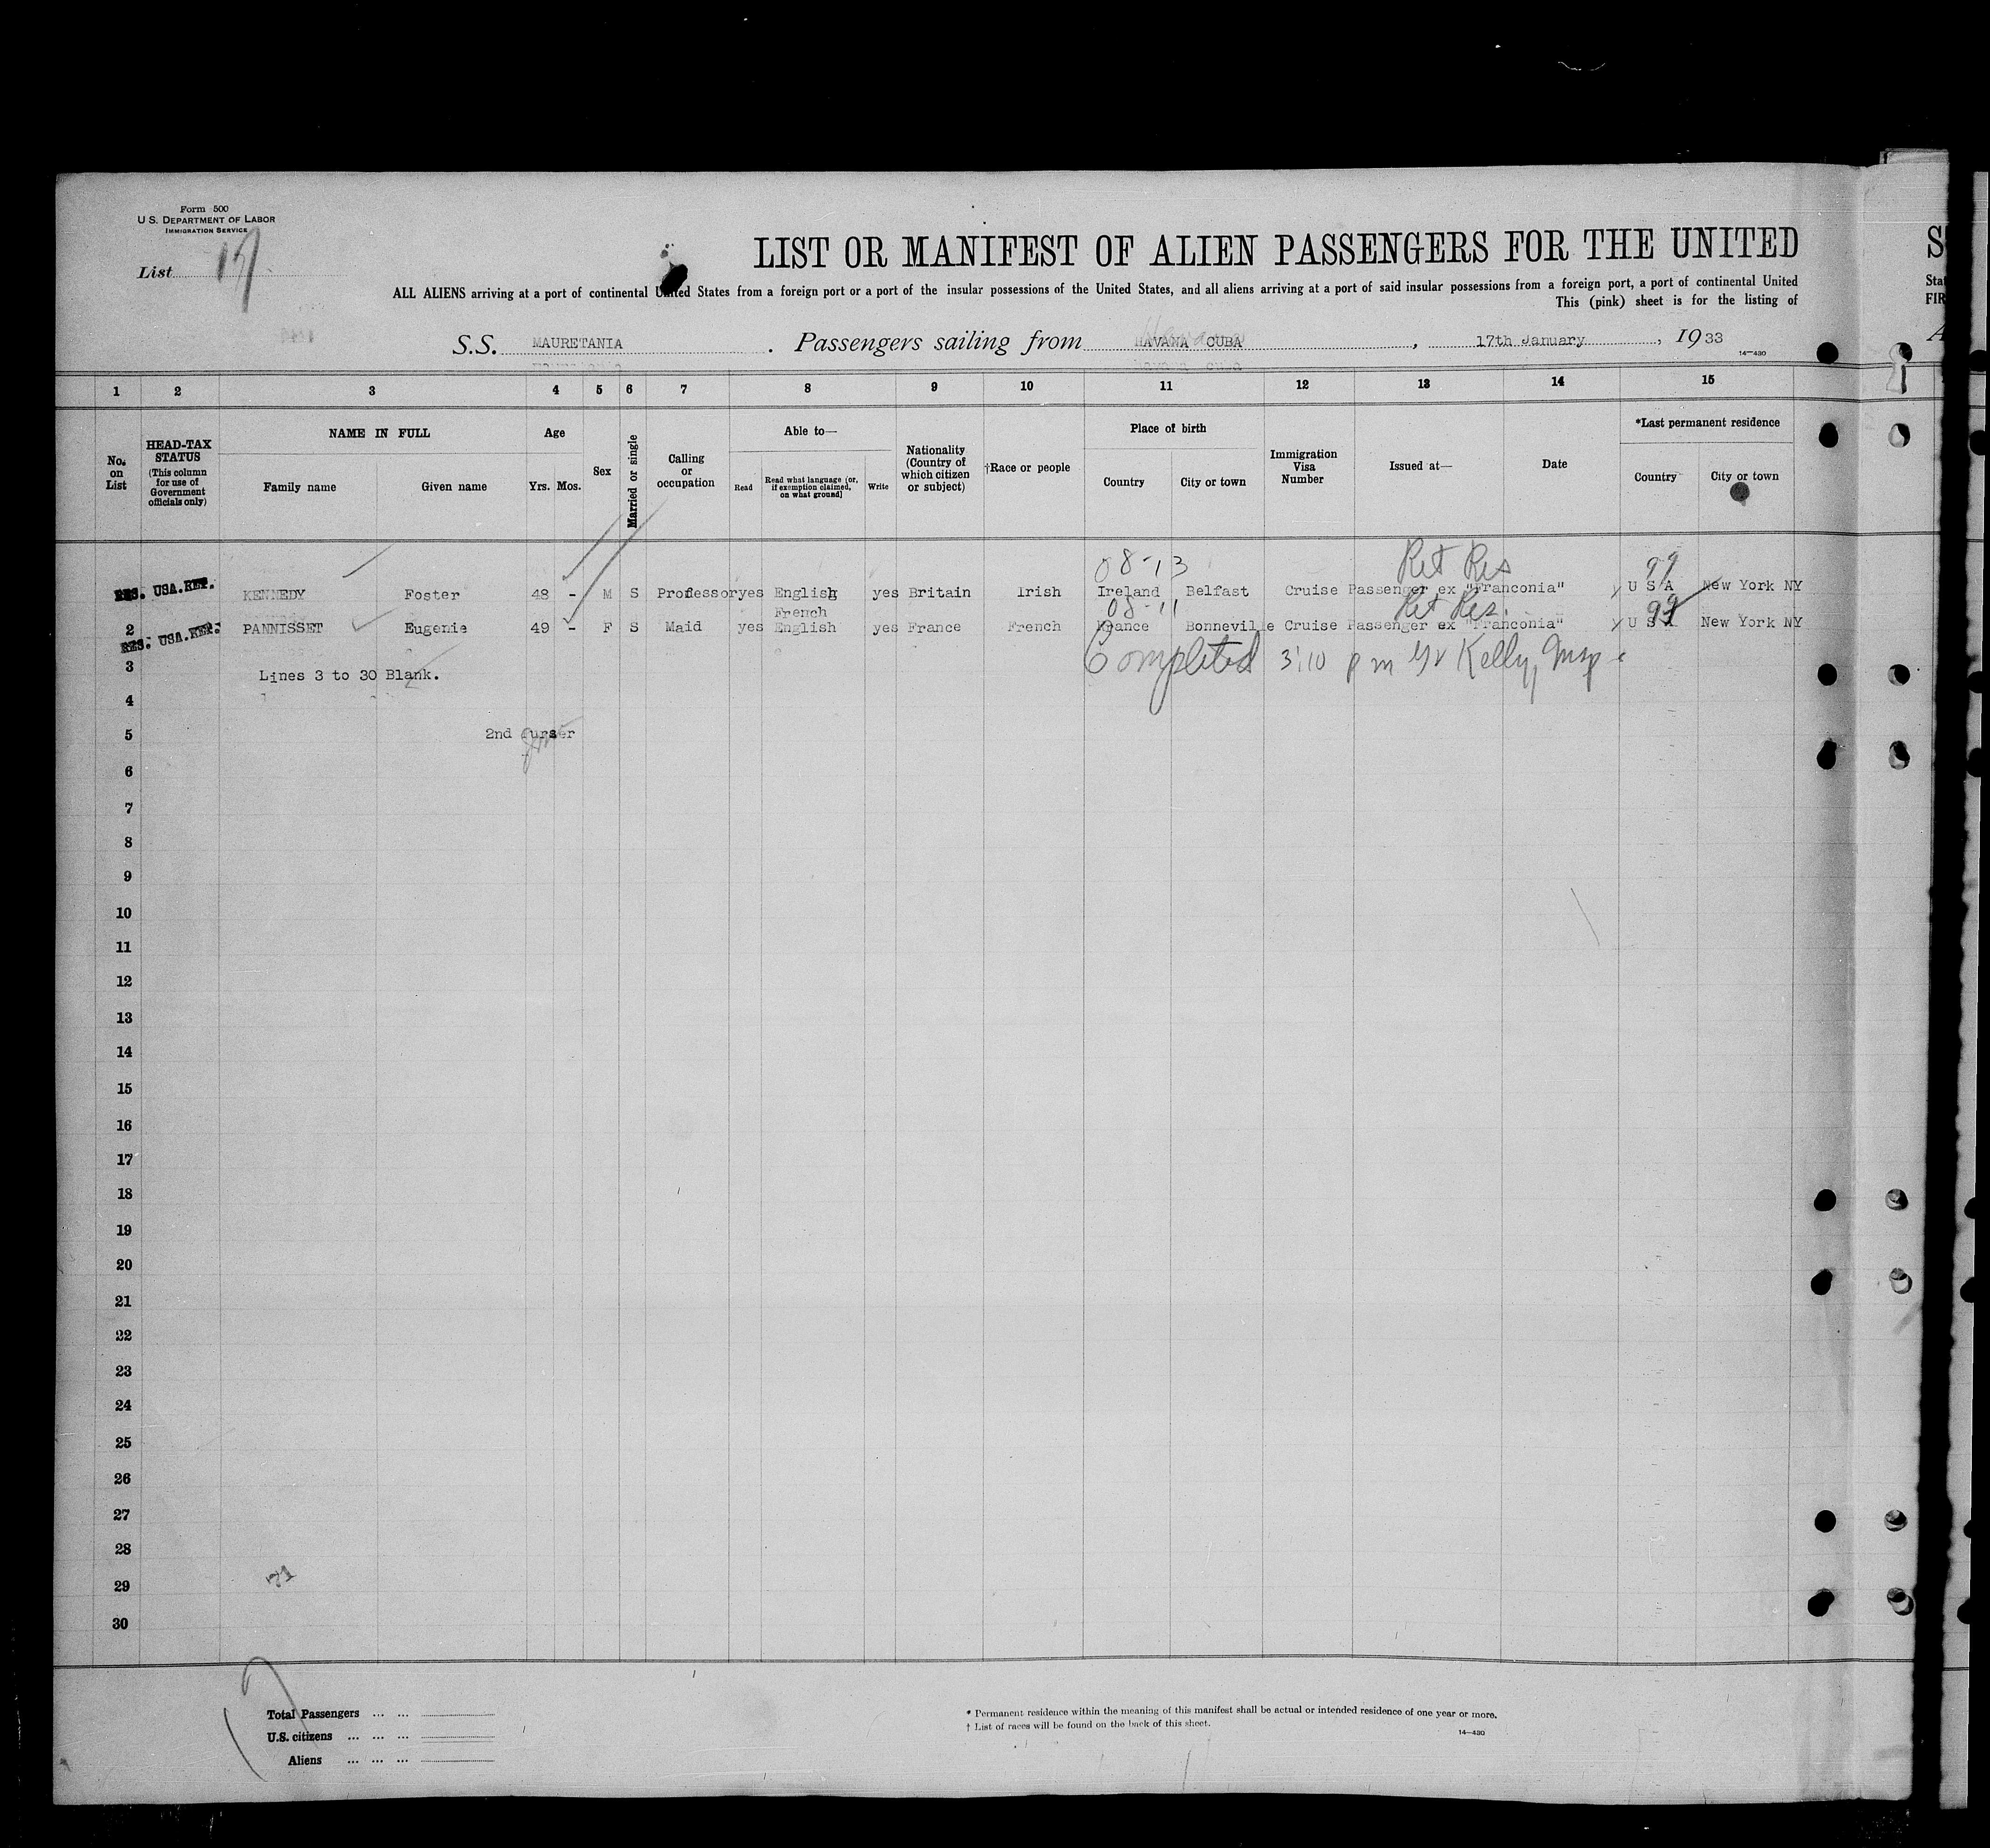 Form 500
U S. DEPARTMENT OF LABOR
IMMIGRATION SERVICE
List
LIST OR MANIFEST OF ALIEN PASSENGERS FOR THE UNITED
ALL ALIENS arriving at a port of continental United States from a foreign port or a port of the insular possessions of the United States, and all aliens arriving at a port of said insular possessions from a foreign port, a port of continental United
This (pink) sheet is for the listing of
S.S. MAURETANIA . Passengers sailing from HAVANA CUBA , 17th January , 1933
14—430
1 2 3 4 5 6 7 8 9 10 11 12 13 14 15
No. on List
HEAD-TAX STATUS (This column for use of Government officials only)
NAME IN FULL
Family name Given name
Age
Yrs. Mos.
Sex
Married or single
Calling or occupation
Able to—
Read Read what language (or, if exemption claimed, on what ground) Write
Nationality (Country of which citizen or subject)
†Race or people
Place of birth
Country City or town
Immigration Visa Number
Issued at—
Date
*Last permanent residence
Country City or town
08-13 Ret Res 99
RES. USA.REP. KENNEDY Foster 48 - M S Professor yes English yes Britain Irish Ireland Belfast Cruise Passenger ex "Franconia" U S A New York NY
French 08-11 Ret Res. 99
2 RES. USA.REP. PANNISSET Eugenie 49 - F S Maid yes English yes France French France Bonneville Cruise Passenger ex "Franconia" U S A New York NY
Completed 3:10 pm Kelly, Insp
3
Lines 3 to 30 Blank.
4
5 2nd Purser
6
7
8
9
10
11
12
13
14
15
16
17
18
19
20
21
22
23
24
25
26
27
28
29
30
Total Passengers ... ...
U.S. citizens ... ... ...
Aliens ... ... ...
* Permanent residence within the meaning of this manifest shall be actual or intended residence of one year or more.
† List of races will be found on the back of this sheet.
14—430
S
Stat
FIR
A